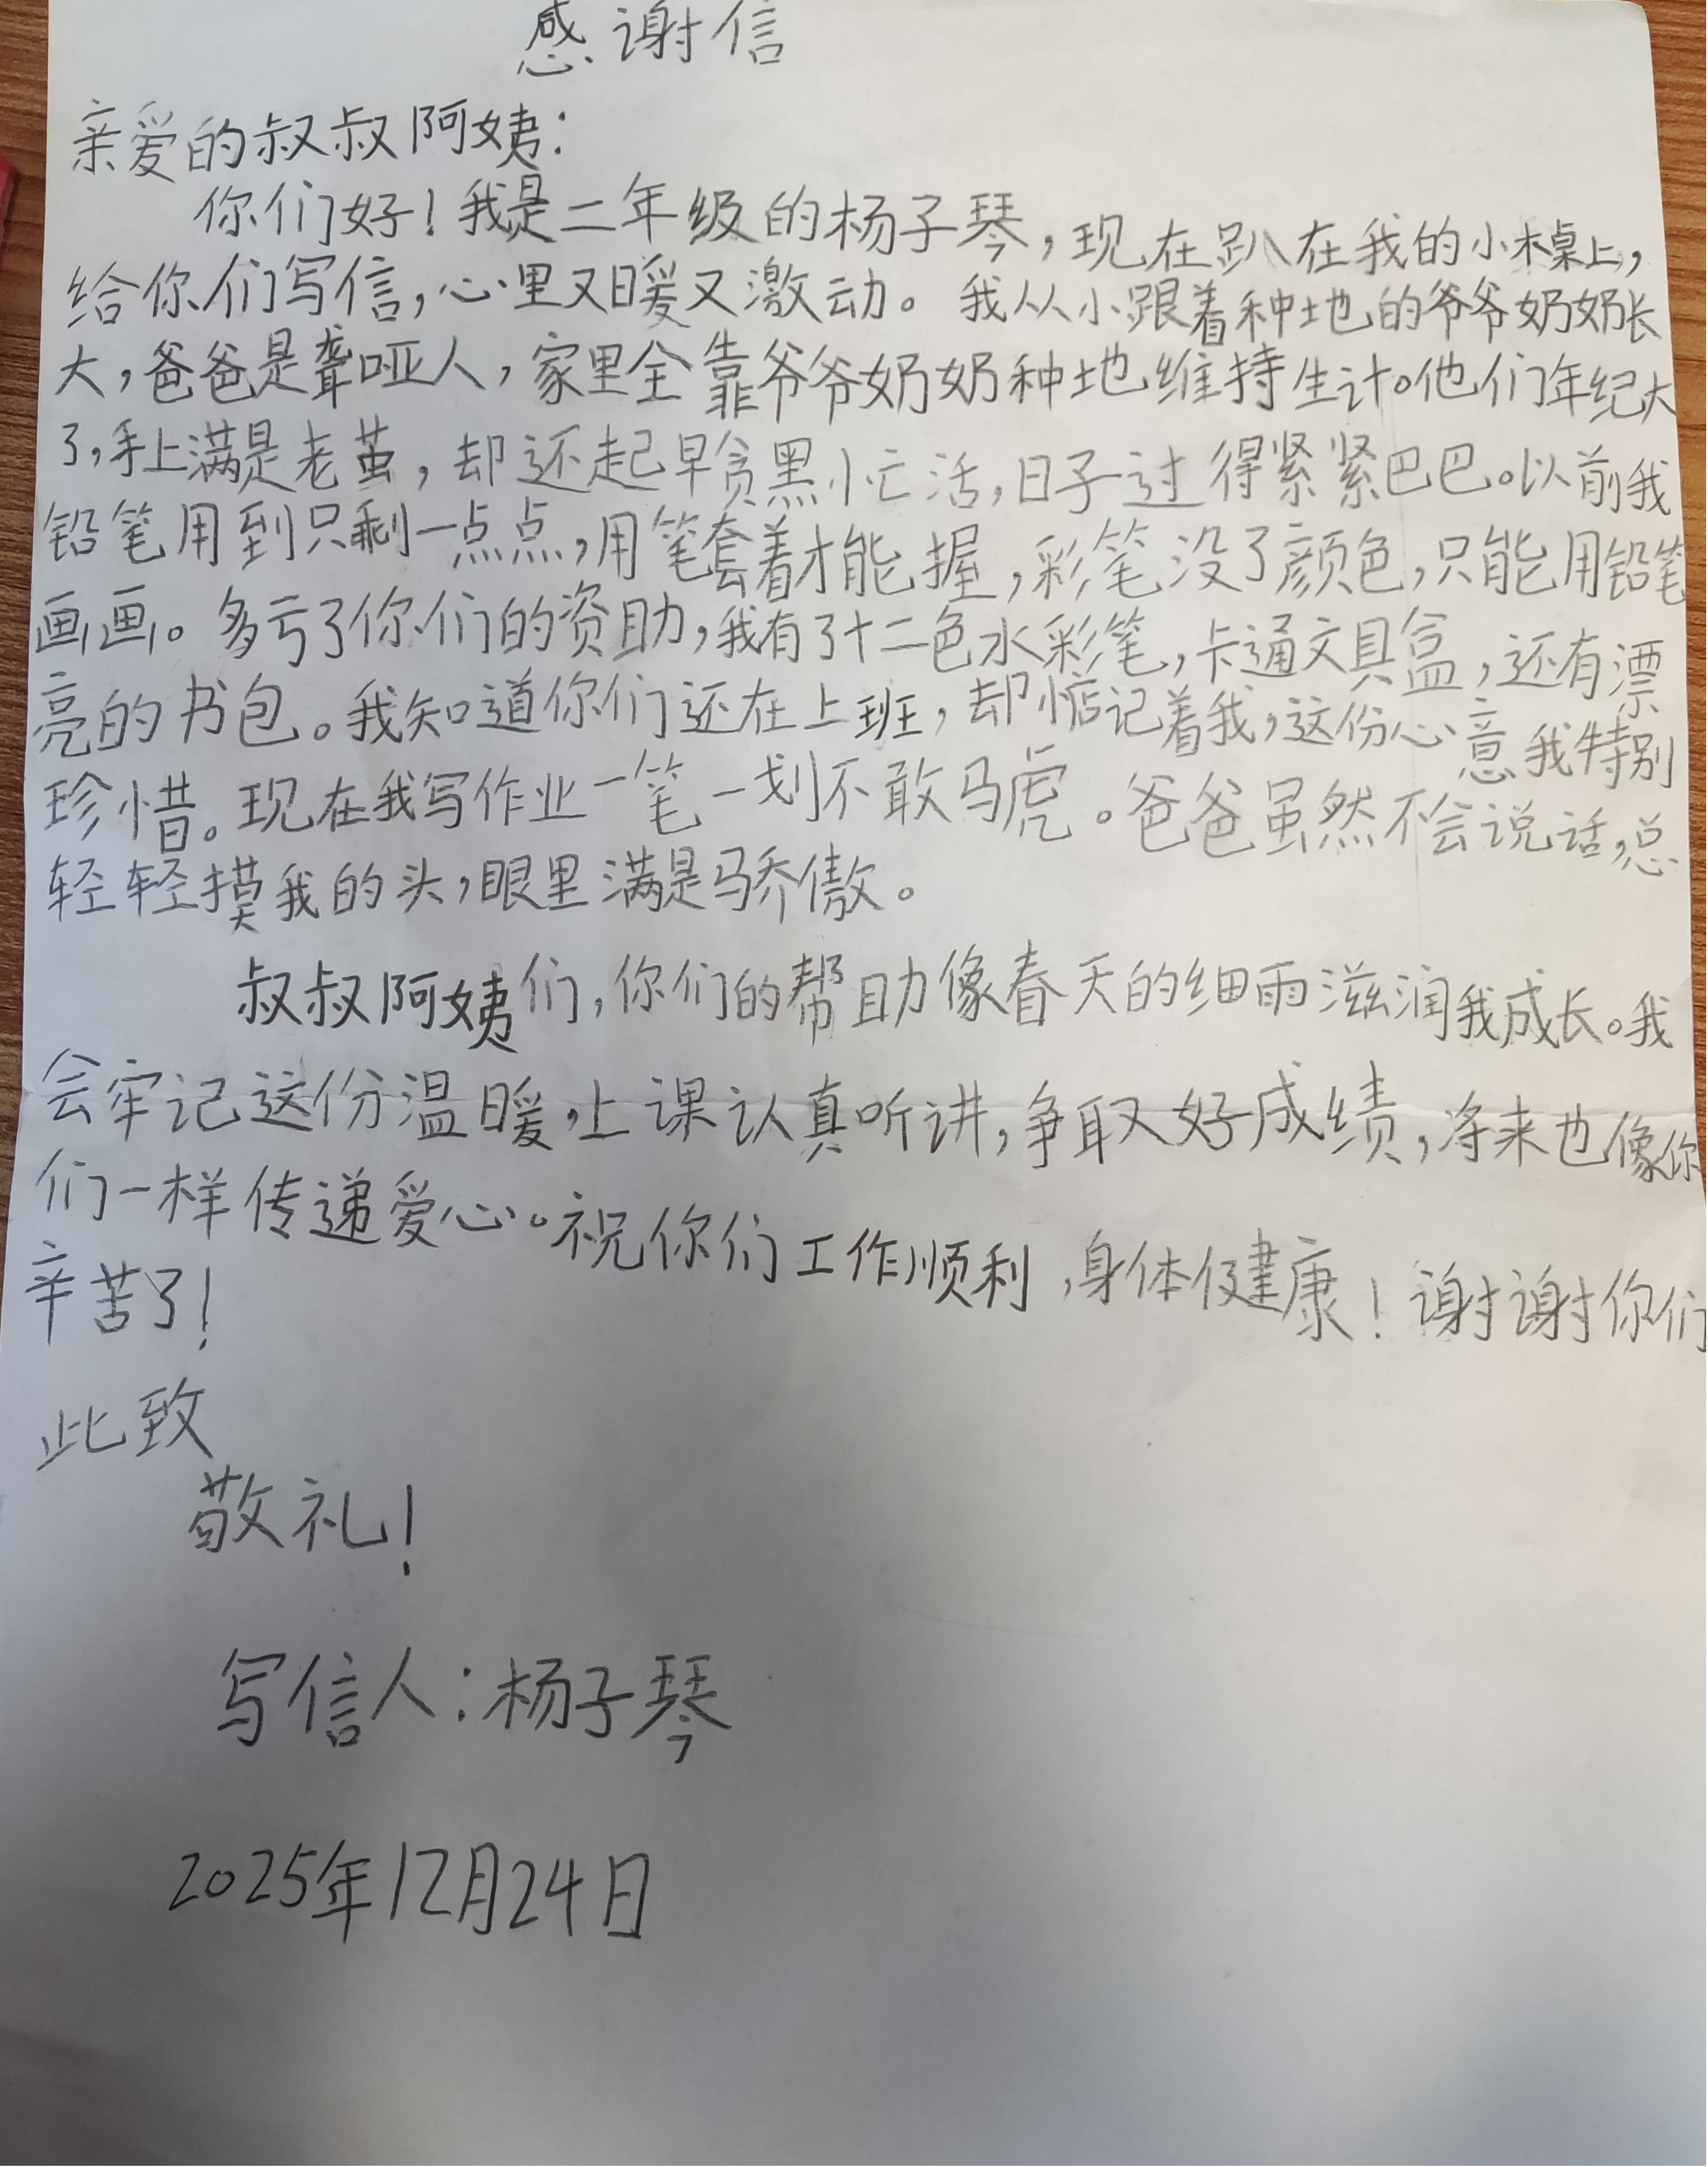 感谢信
亲爱的叔叔阿姨：
你们好！我是二年级的杨子琴，现在趴在我的小木桌上，
给你们写信，心里又暖又激动。我从小跟着种地的爷爷奶奶长
大，爸爸是聋哑人，家里全靠爷爷奶奶种地维持生计。他们年纪大
了，手上满是老茧，却还起早贪黑忙活，日子过得紧紧巴巴。以前我
铅笔用到只剩一点点，用笔套着才能握，彩笔没了颜色，只能用铅笔
画画。多亏了你们的资助，我有了十二色水彩笔，卡通文具盒，还有漂
亮的书包。我知道你们还在上班，却惦记着我，这份心意我特别
珍惜。现在我写作业一笔一划不敢马虎。爸爸虽然不会说话，总
轻轻摸我的头，眼里满是骄傲。
叔叔阿姨们，你们的帮助像春天的细雨滋润我成长。我
会牢记这份温暖，上课认真听讲，争取好成绩，将来也像你
们一样传递爱心。祝你们工作顺利，身体健康！谢谢你们
辛苦了！
此致
敬礼！
写信人：杨子琴
2025年12月24日